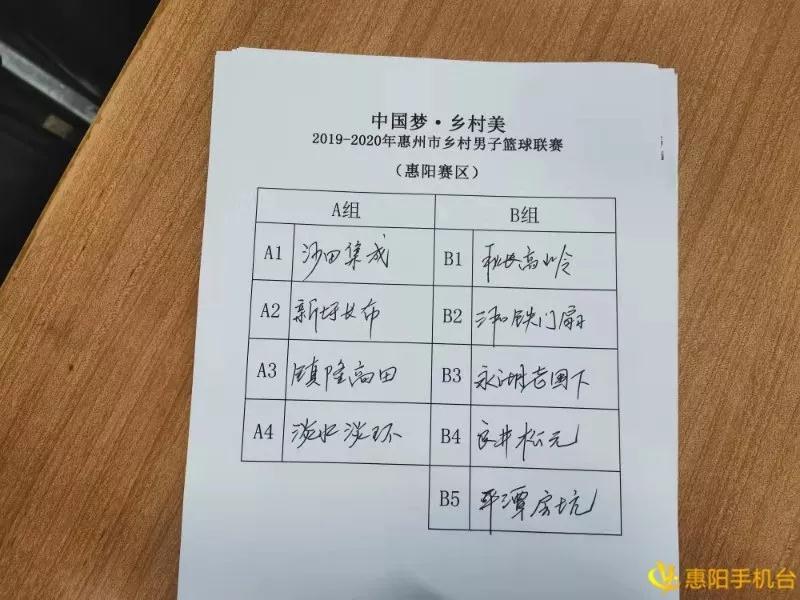 中国梦·乡村美
2019-2020年惠州市乡村男子篮球联赛
（惠阳赛区）
A组 B组
A1 沙田集成 B1 秋长高岭
A2 新圩长布 B2 三和铁门扇
A3 镇隆高田 B3 永湖老围下
A4 淡水淡环 B4 良井松元
B5 平潭房坑
惠阳手机台